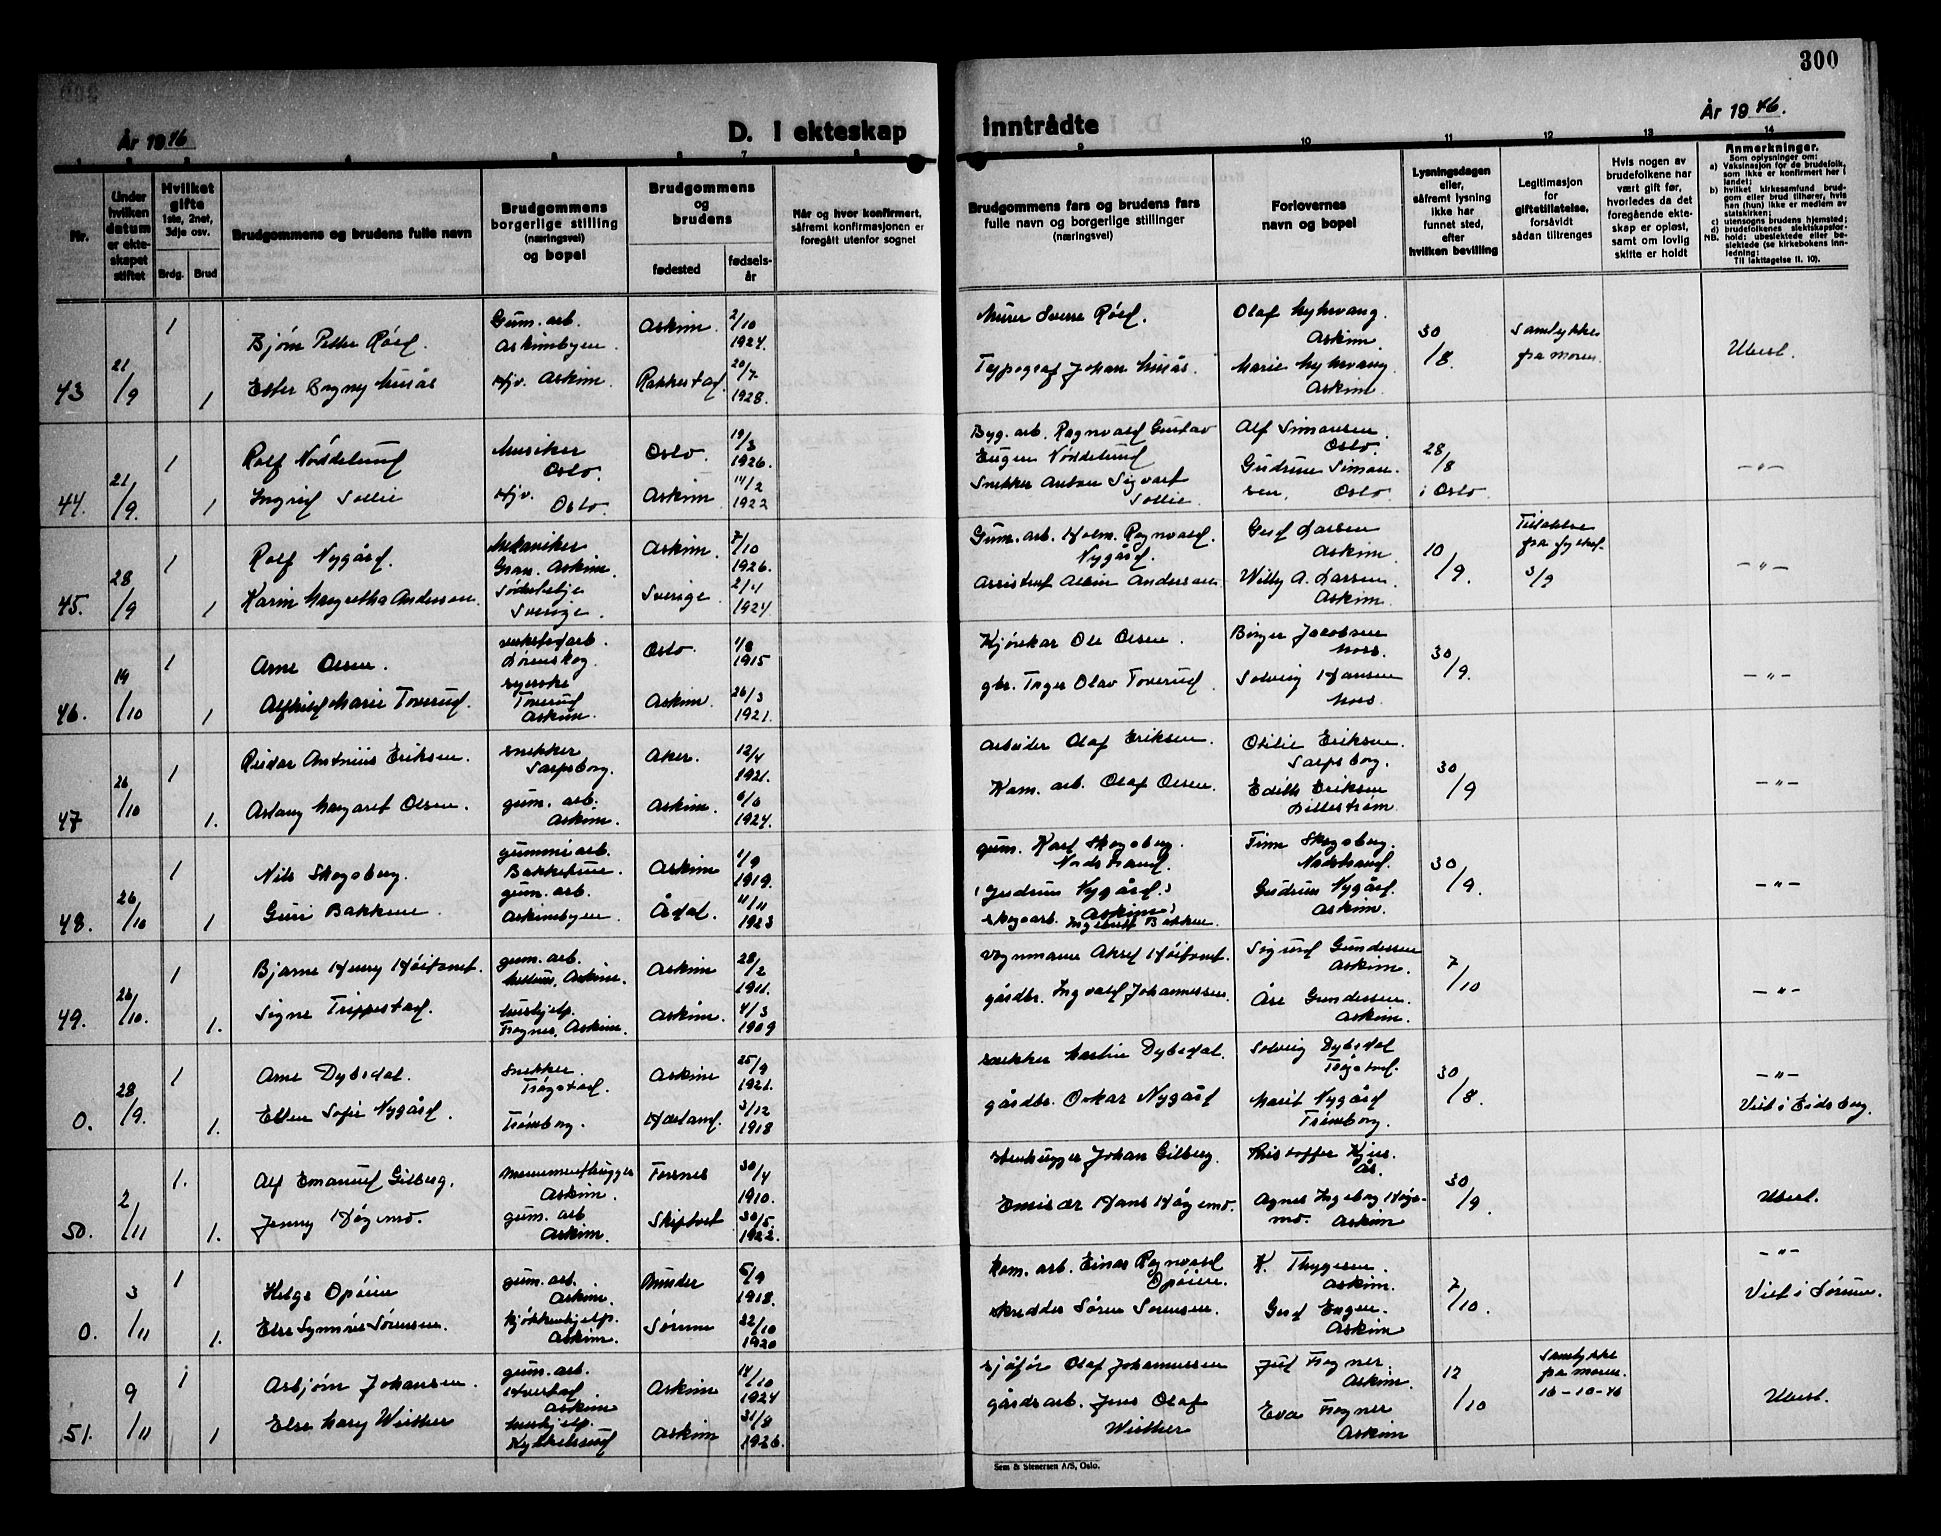 300
År 1946
D. I ekteskap
inntrådte
År 1946.
Nr.
Under hvilken datum er ekteskapet stiftet
Hvilket gifte
1ste, 2net, 3dje osv.
Brdg.
Brud
Brudgommens og brudens fulle navn
Brudgommens borgerlige stilling
(næringsvei)
og bopel
Brudgommens og brudens
fødested
fødselsår
Når og hvor konfirmert, såfremt konfirmasjonen er foregått utenfor sognet
Brudgommens fars og brudens fars fulle navn og borgerlige stillinger
(næringsvei)
Forlovernes navn og bopel
Lysningsdagen eller, såfremt lysning ikke har funnet sted, efter hvilken bevilling
Legitimasjon for giftetillatelse, forsåvidt sådan tiltrenges
Hvis nogen av brudefolkene har vært gift før, hvorledes da det foregående ekteskap er opløst, samt om lovlig skifte er holdt
Anmerkninger.
Som oplysninger om:
a) Vaksinasjon for de brudefolk, som ikke er konfirmert her i landet;
b) hvilket kirkesamfund brudgom eller brud tilhører, hvis han (hun) ikke er medlem av statskirken;
c) utensogns brudens hjemsted;
d) brudefolkenes slektskapsforhold: ubeslektede eller beslektede (se kirkebokens innledning:
NB.
Til iakttagelse II. 10).
43
21/9
1
1
Bjørn Petter Røed.
Gum. arb.
Askimbyen.
Askim.
2/10 1924.
Murer Sverre Røed.
Olaf Myhrvang.
Askim.
30/8.
Samtykke fra moren.
Ubesl.
Ester Bogny Musås
Hjv. Askim.
Rakkestad.
20/7 1928.
Typograf Johan Musås.
Marie Myhrvang
Askim
44.
21/9.
1
1
Rolf Nøddelund
Musiker
Oslo.
Oslo.
19/3 1926.
Byg. arb. Ragnvald Gustav
Eugen Nøddelund
Alf Simonsen.
Oslo.
28/8 i Oslo.
-"-
Ingrid Sollie
Hjv.
Oslo.
Askim
14/2 1922
Snekker Anton Sigvart
Sollie.
Gudrun Simonsen, Oslo.
45.
28/9
1
1
Rolf Nygård.
Mekaniker
Gran. Askim.
Askim.
7/10 1926.
Gum. arb. Holm. Ragnvald.
Nygård.
Gerd Larsen
Askim.
10/9.
3/9
-"-
Karin Margretha Anderson.
Sverige.
Sverige
2/4 1924
Albin Anderson
Willy A. Larsen
Askim.
46.
19/10
1
1
Arne Olsen.
verkstedarb.
Lørenskog.
Oslo.
1/8 1915
Kjørekar Ole Olsen.
Børger Jacobsen
Moss.
30/9.
-"-
Alfhild Marie Toverud.
syerske
Toverud
Askim.
Askim.
26/3 1921.
gbr. Inger Olav Toverud.
Solveig Hansen
Moss.
47
26/10
1
1.
Reidar Antonius Eriksen.
snekker
Sarpsborg.
Aker.
12/4 1921.
Arbeider Olaf Eriksen.
Otilie Eriksen.
Sarpsborg.
30/9
-"-
Aslaug Margaret Olsen.
gum. arb.
Askim.
Askim.
1924.
Kom. arb. Olaf Olsen.
Edith Eriksen
Lillestrøm.
48.
26/10
1
1
Nils Skogsberg.
gummiarb.
Askim
1/9 1919.
gum. Karl Skogsberg.
Nordstrand.
Finn Skogsberg.
Nordstrand.
30/9.
-"-
Guri Bakken.
gum. arb.
Askimbyen.
Ådal.
11/11 1923
(Gudrun Nygård.
Askim)
skogsarb. Ingebrikt Bakken
Gudrun Nygård.
Askim.
49.
26/10.
1
1.
Bjarne Henry Høitomt.
gum. arb.
Askim.
Askim
28/2 1911.
vognmann Aksel Høitomt.
Sigurd Gundersen
Askim.
7/10
-"-
Signe Trippestad.
hushjelp.
Fragner, Askim.
Askim.
4/3 1909
gårdbr. Ingvald Johannessen.
Åse Gundersen.
Askim.
0.
28/9.
1
1.
Arne Dybedal.
Snekker.
Trøgstad.
Askim
25/9 1921.
snekker Martin Dybedal.
Solveig Dybedal
Trøgstad.
30/8.
-"-
Viet i Eidsberg.
Ellen Sofie Nygård.
Trømborg.
Hærland.
3/12 1918
gårdbr. Oskar Nygård
Marit Nygård
Trømborg.
50.
2/11
1.
1.
Alf Emanuel Gilberg.
Monumenthugger
Askim.
Torsnes
30/4 1910.
stenhugger Johan Gilberg.
Kristoffer
30/9.
Ubesl.
Jenny Høgemo.
gum. arb
Askim.
Skiptvet
30/5. 1922.
Emissær Hans Høgemo.
Agnes Ingeborg Høgemo. Askim
0.
3/11
1
1.
Helge Opøien
gum. arb.
Askim.
6/9 1918.
kom. arb. Einar Ragnvald
Opøien.
K. Thygesen.
Askim.
7/10.
-"-
Viet i Sørum.
Else Synnøve Sørensen.
kjøkkenhjelp.
Askim.
Sørum
22/10 1920
skredder Søren Sørensen.
Gerd Engen.
Askim
51.
9/11
1
1
Asbjørn Johansen.
gum. arb.
Askim
Askim
14/10 1924
sjåfør Olaf Johannessen
Fragner.
Askim.
12/10
Samtykke fra moren
10-10-46
Ubesl.
Else Mary Wisther
hushjelp.
Kykkelsrud
Askim
31/8 1926.
gårdsarb. Jens Olaf
Wisther
Eva Fragner
Askim
Sem & Stenersen A/S, Oslo.